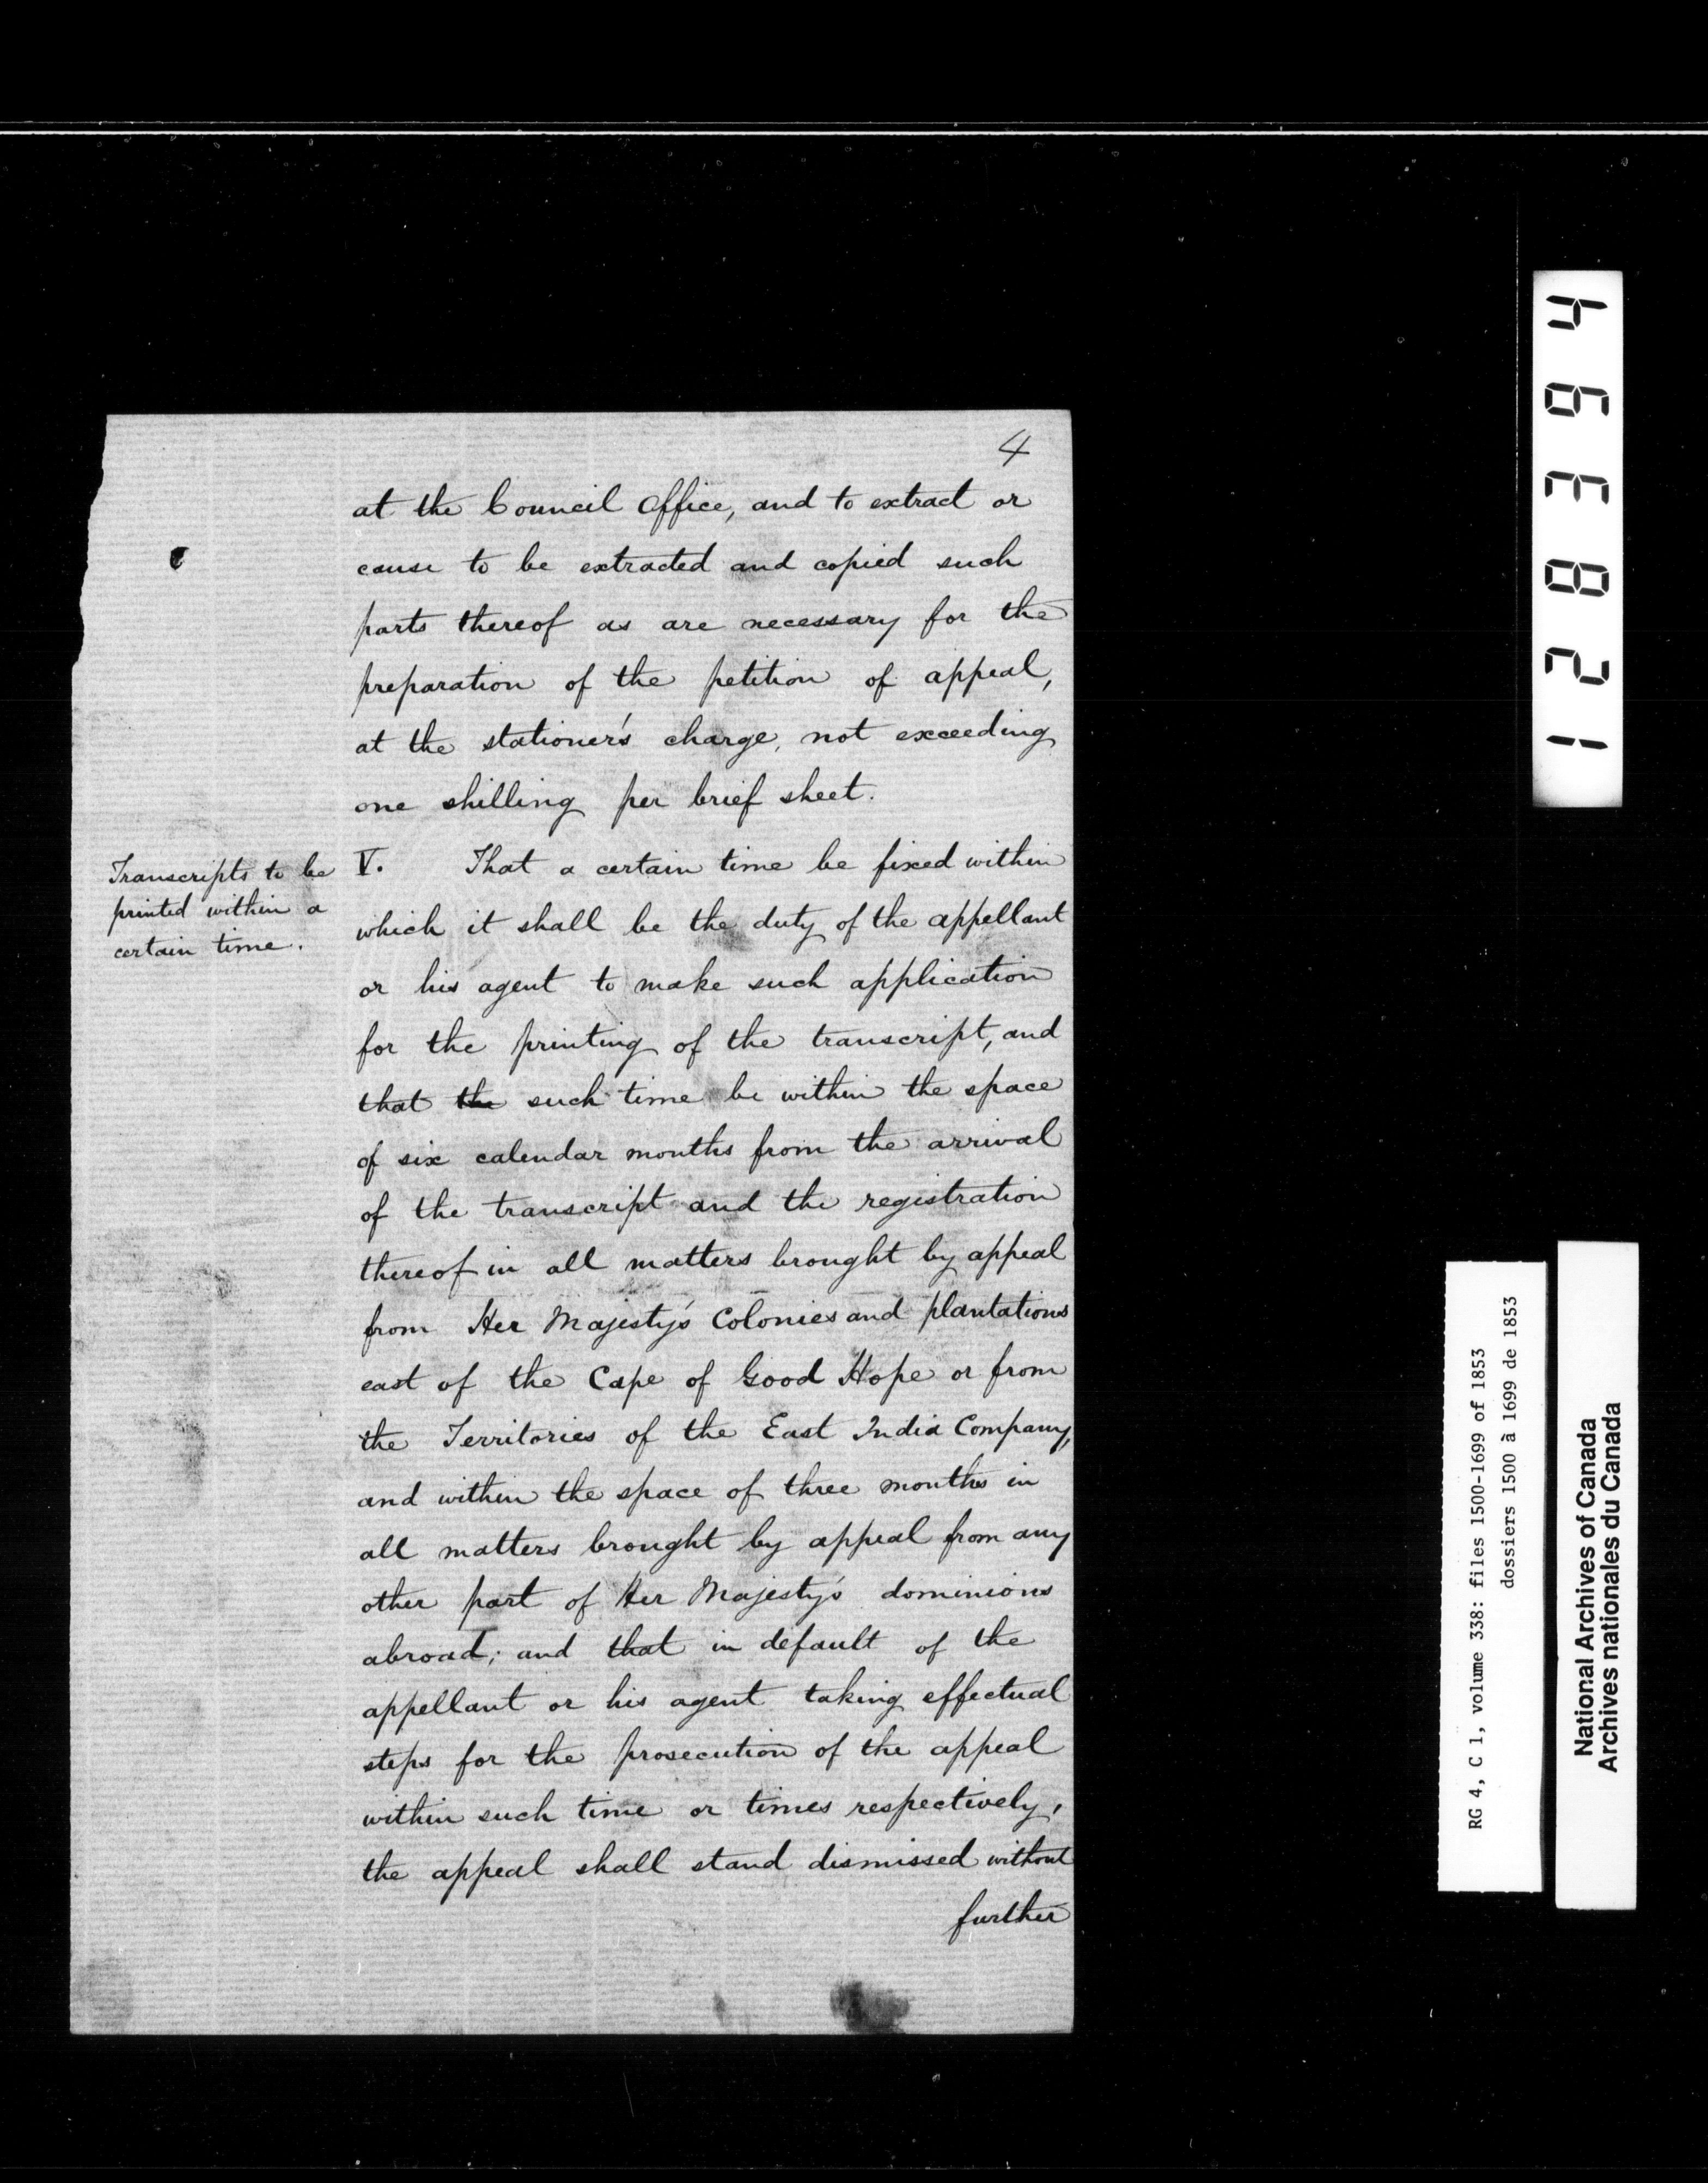 4
at the Council Office, and to extract or
cause to be extracted and copied such
parts thereof as are necessary for the
preparation of the petition of appeal,
at the stationer's charge, not exceeding
one shilling per brief sheet.
Transcripts to be
printed within a
certain time.
V. That a certain time be fixed within
which it shall be the duty of the appellant
or his agent to make such application
for the printing of the transcript, and
that the such time be within the space
of six calendar months from the arrival
of the transcript and the registration
thereof in all matters brought by appeal
from Her Majesty's Colonies and plantations
east of the Cape of Good Hope or from
the Territories of the East India Company,
and within the space of three months in
all matters brought by appeal from any
other part of Her Majesty's dominions
abroad; and that in default of the
appellant or his agent taking effectual
steps for the prosecution of the appeal
within such time or times respectively,
the appeal shall stand dismissed without
further
128394
RG 4, C 1, volume 338: files 1500-1699 of 1853
dossiers 1500 à 1699 de 1853
National Archives of Canada
Archives nationales du Canada